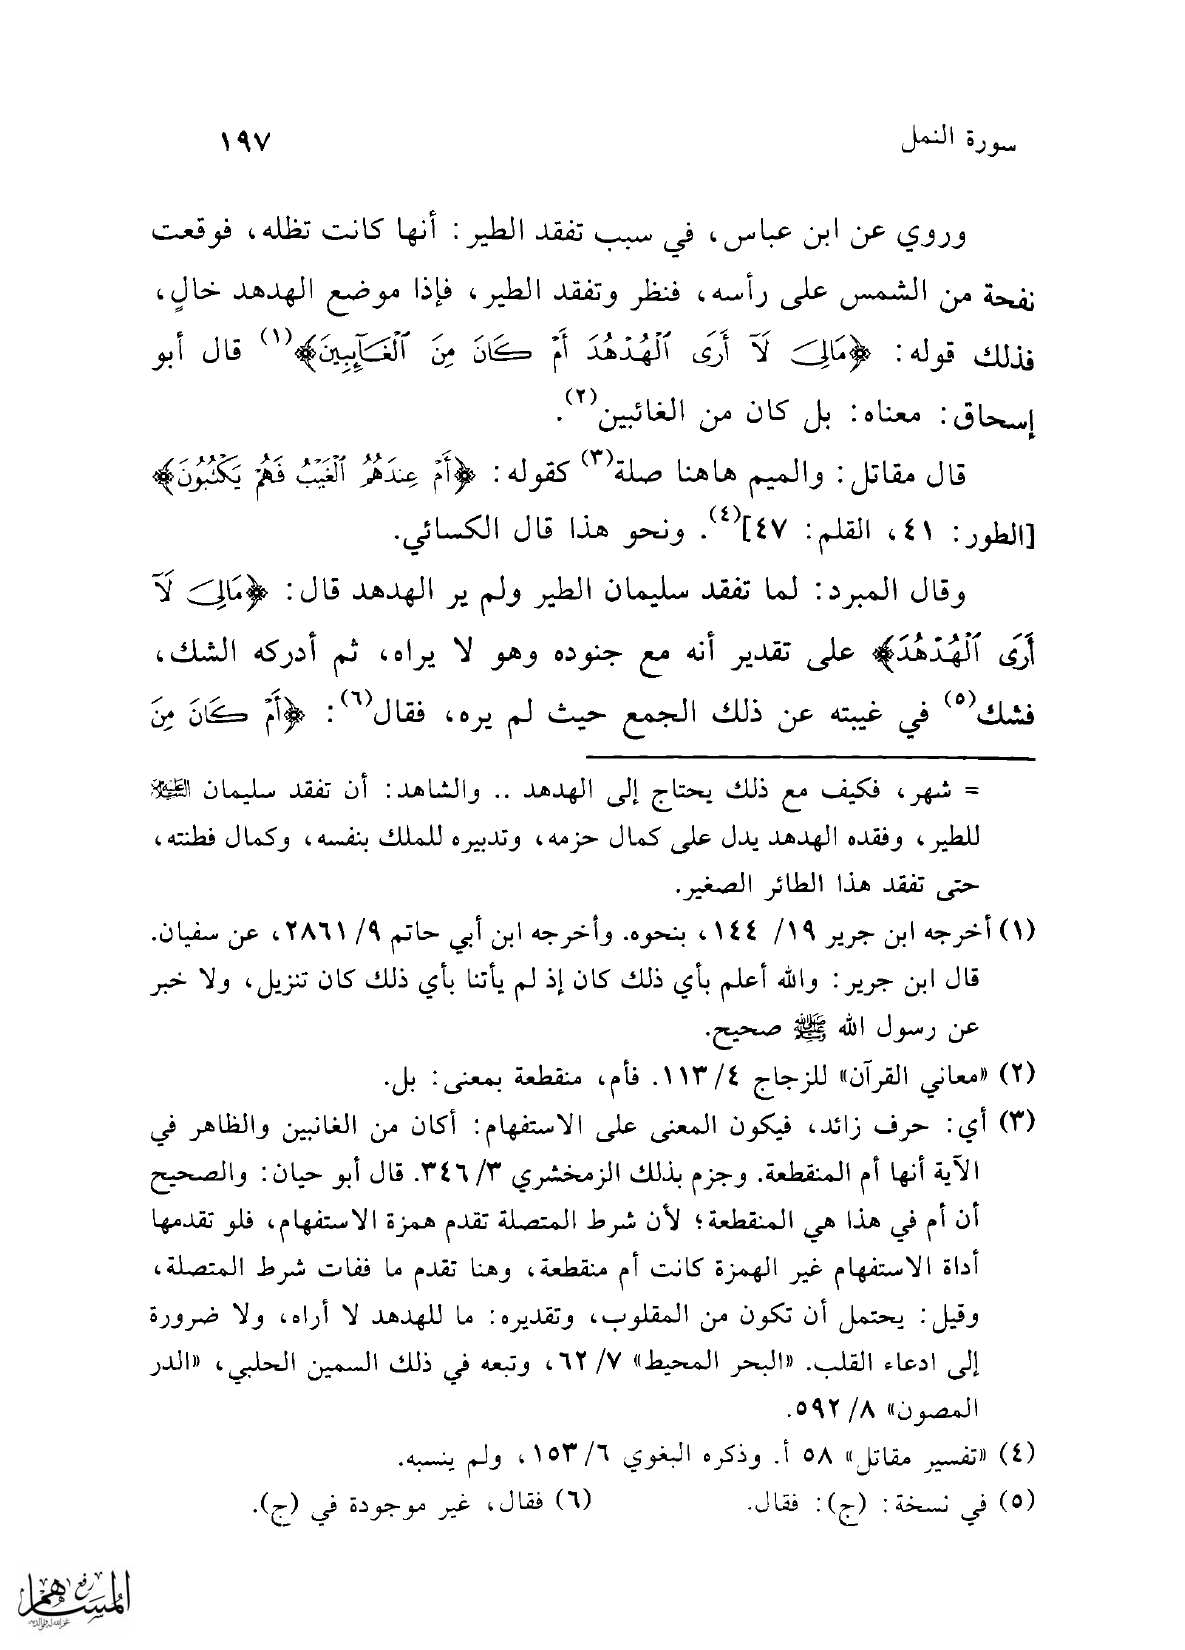 سورة النمل ١٩٧
وروي عن ابن عباس، في سبب تفقد الطير: أنها كانت تظله، فوقعت
نفحة من الشمس على رأسه، فنظر وتفقد الطير، فإذا موضع الهدهد خالٍ،
فذلك قوله: ﴿مَالِىَ لَآ أَرَى ٱلْهُدْهُدَ أَمْ كَانَ مِنَ ٱلْغَآئِبِينَ﴾(١) قال أبو
إسحاق: معناه: بل كان من الغائبين(٢).
قال مقاتل: والميم هاهنا صلة(٣) كقوله: ﴿أَمْ عِندَهُمُ ٱلْغَيْبُ فَهُمْ يَكْتُبُونَ﴾
[الطور: ٤١، القلم: ٤٧](٤). ونحو هذا قال الكسائي.
وقال المبرد: لما تفقد سليمان الطير ولم ير الهدهد قال: ﴿مَالِىَ لَآ
أَرَى ٱلْهُدْهُدَ﴾ على تقدير أنه مع جنوده وهو لا يراه، ثم أدركه الشك،
فشك(٥) في غيبته عن ذلك الجمع حيث لم يره، فقال(٦): ﴿أَمْ كَانَ مِنَ
= شهر، فكيف مع ذلك يحتاج إلى الهدهد .. والشاهد: أن تفقد سليمان عليه السلام
للطير، وفقده الهدهد يدل على كمال حزمه، وتدبيره للملك بنفسه، وكمال فطنته،
حتى تفقد هذا الطائر الصغير.
(١) أخرجه ابن جرير ١٩/ ١٤٤، بنحوه. وأخرجه ابن أبي حاتم ٩/ ٢٨٦١، عن سفيان.
قال ابن جرير: والله أعلم بأي ذلك كان إذ لم يأتنا بأي ذلك كان تنزيل، ولا خبر
عن رسول الله ﷺ صحيح.
(٢) «معاني القرآن» للزجاج ٤/ ١١٣. فأم، منقطعة بمعنى: بل.
(٣) أي: حرف زائد، فيكون المعنى على الاستفهام: أكان من الغائبين والظاهر في
الآية أنها أم المنقطعة. وجزم بذلك الزمخشري ٣/ ٣٤٦. قال أبو حيان: والصحيح
أن أم في هذا هي المنقطعة؛ لأن شرط المتصلة تقدم همزة الاستفهام، فلو تقدمها
أداة الاستفهام غير الهمزة كانت أم منقطعة، وهنا تقدم ما ففات شرط المتصلة،
وقيل: يحتمل أن تكون من المقلوب، وتقديره: ما للهدهد لا أراه، ولا ضرورة
إلى ادعاء القلب. «البحر المحيط» ٧/ ٦٢، وتبعه في ذلك السمين الحلبي، «الدر
المصون» ٨/ ٥٩٢.
(٤) «تفسير مقاتل» ٥٨ أ. وذكره البغوي ٦/ ١٥٣، ولم ينسبه.
(٥) في نسخة: (ج): فقال. (٦) فقال، غير موجودة في (ج).
رفع
المساهم